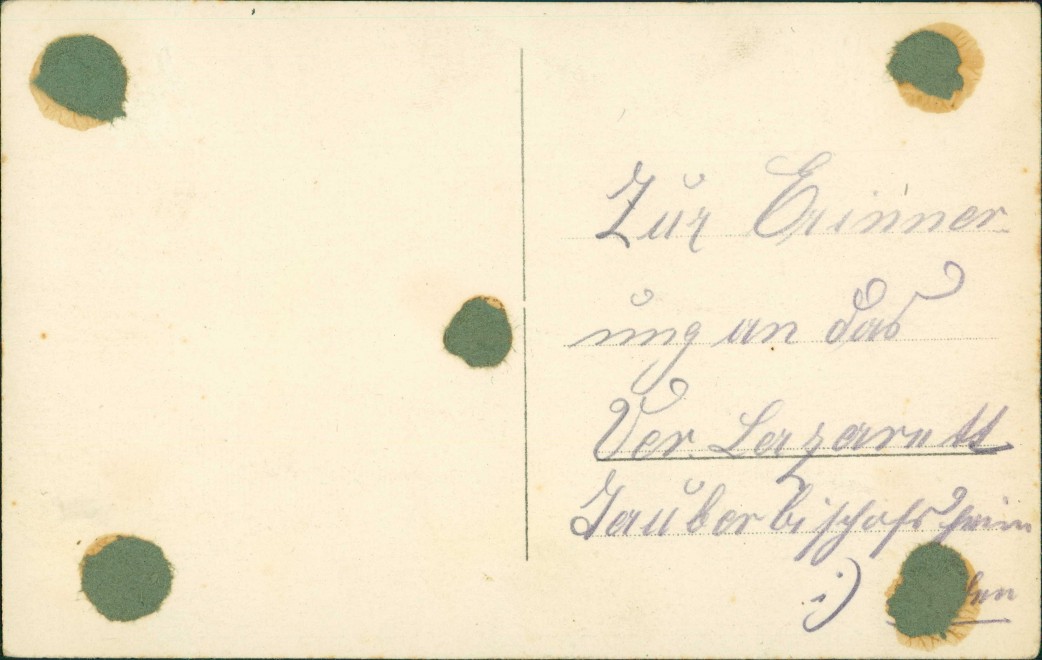 Zur Erinner-
ung an das
Ver. Lazarett
Tauberbischofsheim
i)